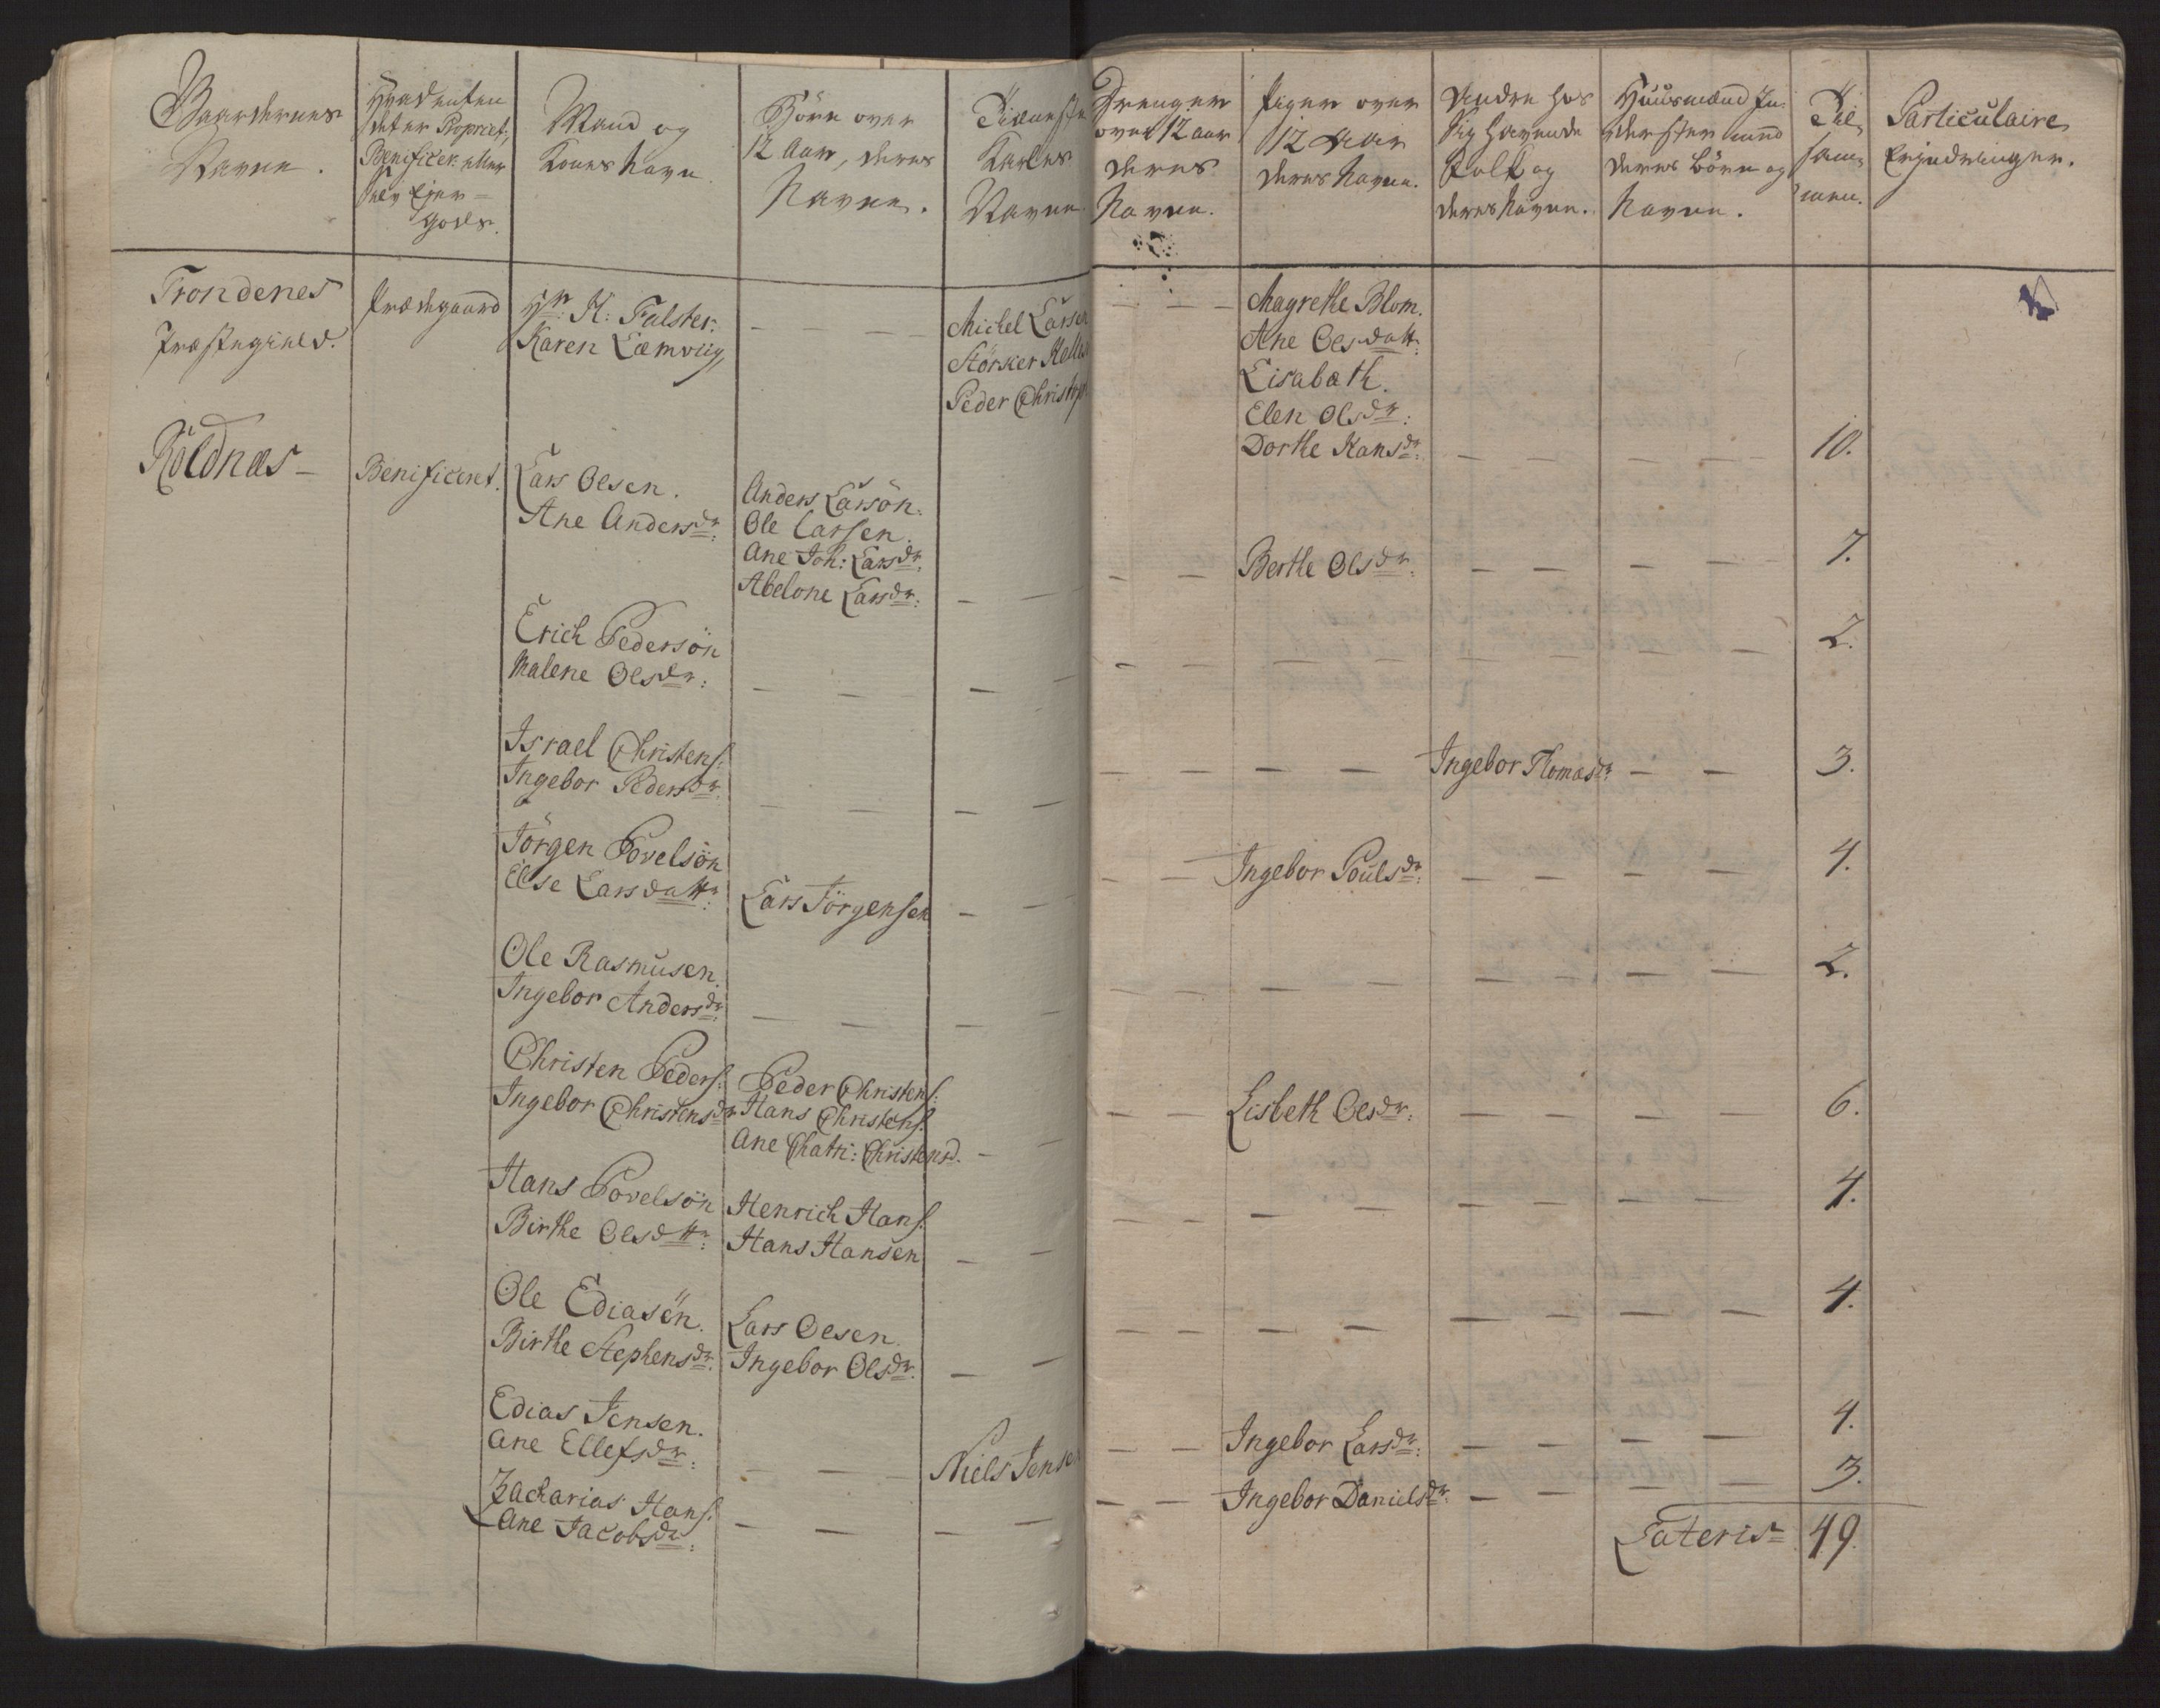 Gaardernes
Navne.
Hvad enten
det er Propriet,
Benificer. eller
Selv Ejer =
gods.
Mand og
Kones Navn.
Börn over
12 Aar, deres
Navne.
Tieneste
Karles
Navne
Drenger
over 12 aar
deres
Navne.
Piger over
12 Aar
deres Navne.
Andre hos
sig havende
Folk og
deres Navne.
Huusmænd In-
derster med
deres Börn og
Navne.
Til
sam-
men.
Particulaire
Erindringer.
Trondenes
Præstegield.
Prædegaard
Hr. K: Falster.
Karen Læmvig,
Michel Larsen
Störker
Peder
Magrethe Blom.
Ane Olsdattr.
Lisabæth.
Elen Olsdr:
Dorthe Hansdr:
10.
Röldnæs
Benificeret.
Lars Olsen.
Ane Andersdr:
Anders Larsön.
Ole Larsen.
Ane Joh: Larsdr.
Abelone Larsdr:
Berthe Olsdr.
7.
Erich Pedersön
Malene Olsdr:
2.
Israel Christens:
Ingebor Pedersdr.
Ingebor Thomasdr.
3.
Jörgen Povelsön
Else Larsdattr:
Lars Jörgensen
Ingebor Poulsdr:
4.
Ole Rasmusen.
Ingebor Andersdr.
2.
Christen Peders:
Ingebor Christensdr
Peder Christens:
Hans Christens.
Ane Chatr: Christensd.
Lisbeth Olsdr:
6.
Hans Povelsön
Birthe Olsdttr:
Henrich Hans.
Hans Hansen
4.
Ole Ediasön.
Birthe Stephensdr.
Lars Olsen.
Ingebor Olsdr.
4.
Edias Jensen.
Ane Ellefsdr:
Niels Jensen
Ingebor Larsdr:
4.
Zacharias Hans.
Ane Jacobsdr:
Ingebor Danielsdr.
3.
Lateris
49.